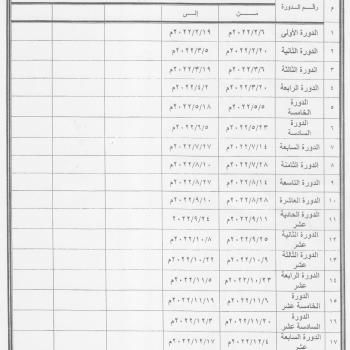 م رقم الدورة من إلى
١ الدورة الأولى ٢٠٢٢/٢/٦م ٢٠٢٢/٢/١٩م
٢ الدورة الثانية ٢٠٢٢/٢/٢٠م ٢٠٢٢/٣/٥م
٣ الدورة الثالثة ٢٠٢٢/٣/٦م ٢٠٢٢/٣/١٩م
٤ الدورة الرابعة ٢٠٢٢/٣/٢٠م ٢٠٢٢/٤/٢م
٥ الدورة الخامسة ٢٠٢٢/٥/٥م ٢٠٢٢/٥/١٨م
٦ الدورة السادسة ٢٠٢٢/٥/٢٣م ٢٠٢٢/٦/٥م
٧ الدورة السابعة ٢٠٢٢/٧/١٤م ٢٠٢٢/٧/٢٧م
٨ الدورة الثامنة ٢٠٢٢/٧/٢٨م ٢٠٢٢/٨/١٠م
٩ الدورة التاسعة ٢٠٢٢/٨/١٤م ٢٠٢٢/٨/٢٧م
١٠ الدورة العاشرة ٢٠٢٢/٨/٢٨م ٢٠٢٢/٩/١٠م
١١ الدورة الحادية عشر ٢٠٢٢/٩/١١م ٢٠٢٢/٩/٢٤
١٢ الدورة الثانية عشر ٢٠٢٢/٩/٢٥م ٢٠٢٢/١٠/٨م
١٣ الدورة الثالثة عشر ٢٠٢٢/١٠/٩م ٢٠٢٢/١٠/٢٢م
١٤ الدورة الرابعة عشر ٢٠٢٢/١٠/٢٣م ٢٠٢٢/١١/٥م
١٥ الدورة الخامسة عشر ٢٠٢٢/١١/٦م ٢٠٢٢/١١/١٩م
١٦ الدورة السادسة عشر ٢٠٢٢/١١/٢٠م ٢٠٢٢/١٢/٣م
١٧ الدورة السابعة عشر ٢٠٢٢/١٢/٤م ٢٠٢٢/١٢/١٧م